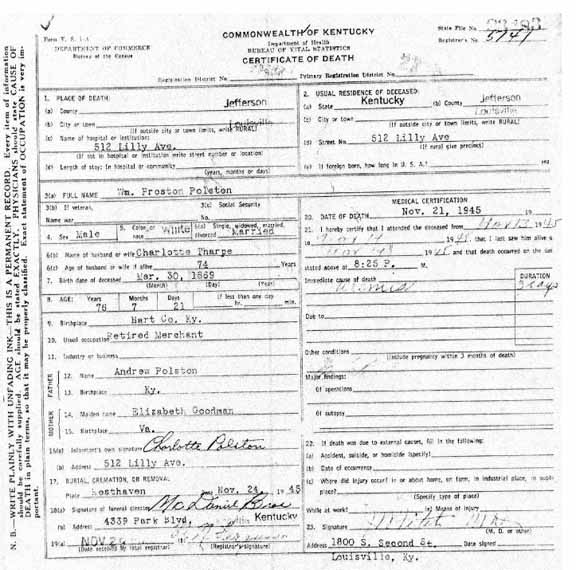 Form V. S. 1-A
DEPARTMENT OF COMMERCE
Bureau of the Census
COMMONWEALTH OF KENTUCKY
Department of Health
BUREAU OF VITAL STATISTICS
CERTIFICATE OF DEATH
State File No.
Registrar's No. 5741
Registration District No.
Primary Registration District No.
N. B.—WRITE PLAINLY WITH UNFADING INK—THIS IS A PERMANENT RECORD. Every item of information
should be carefully supplied. AGE should be stated EXACTLY. PHYSICIANS should state CAUSE OF
DEATH in plain terms, so that it may be properly classified. Exact statement of OCCUPATION is very im-
portant.
1. PLACE OF DEATH:
(a) County Jefferson
(b) City or town Louisville
(If outside city or town limits, write RURAL)
(c) Name of hospital or institution:
512 Lilly Ave.
(If not in hospital or institution write street number or location)
(d) Length of stay: In hospital or community
(years, months or days)
2. USUAL RESIDENCE OF DECEASED:
(a) State Kentucky (b) County Jefferson
(c) City or town Louisville
(If outside city or town limits, write RURAL)
(d) Street No. 512 Lilly Ave
(If rural give precinct)
(e) If foreign born, how long in U. S. A.?
3(a) FULL NAME Wm. Proston Polston
3(b) If veteran,
Name war
3(c) Social Security
No.
4. Sex Male
5. Color or
race White
6(a) Single, widowed, married,
divorced Married
6(b) Name of husband or wife Charlotte Tharpe
6(c) Age of husband or wife if alive 74 Years
7. Birth date of deceased Mar. 30, 1869
(Month) (Day) (Year)
8. AGE: Years Months Days If less than one day
76 7 21 hr. min.
9. Birthplace Hart Co. Ky.
10. Usual occupation Retired Merchant
11. Industry or business
FATHER
12. Name Andrew Polston
13. Birthplace Ky.
MOTHER
14. Maiden name Elizabeth Goodman
15. Birthplace Va.
16(a) Informant's own signature Charlotte Polston
(b) Address 512 Lilly Ave.
17. BURIAL, CREMATION, OR REMOVAL
Place Resthaven Nov. 24 1945
18(a) Signature of funeral director McDaniel Bros
(b) Address 4339 Park Blvd. Kentucky
19(a) NOV
(Date received by local registrar) (Registrar's signature)
MEDICAL CERTIFICATION
20. DATE OF DEATH Nov. 21, 1945
21. I hereby certify that I attended the deceased from Nov 13 1945
to 1945, that I last saw him alive
1945 and that death occurred on the
stated above at 8:25 P. M.
Immediate cause of death
Uremia
DURATION
3 days
Due to
Other conditions
(Include pregnancy within 3 months of death)
Major findings:
Of operations
Of autopsy
22. If death was due to external causes, fill in the following:
(a) Accident, suicide, or homicide (specify)
(b) Date of occurrence
(c) Where did injury occur? in or about home, or farm, in industrial place, in
place?
(Specify type of place)
While at work? (e) Means of injury
23. Signature
(M. D.
Address 1800 S. Second St. Date signed
Louisville, Ky.